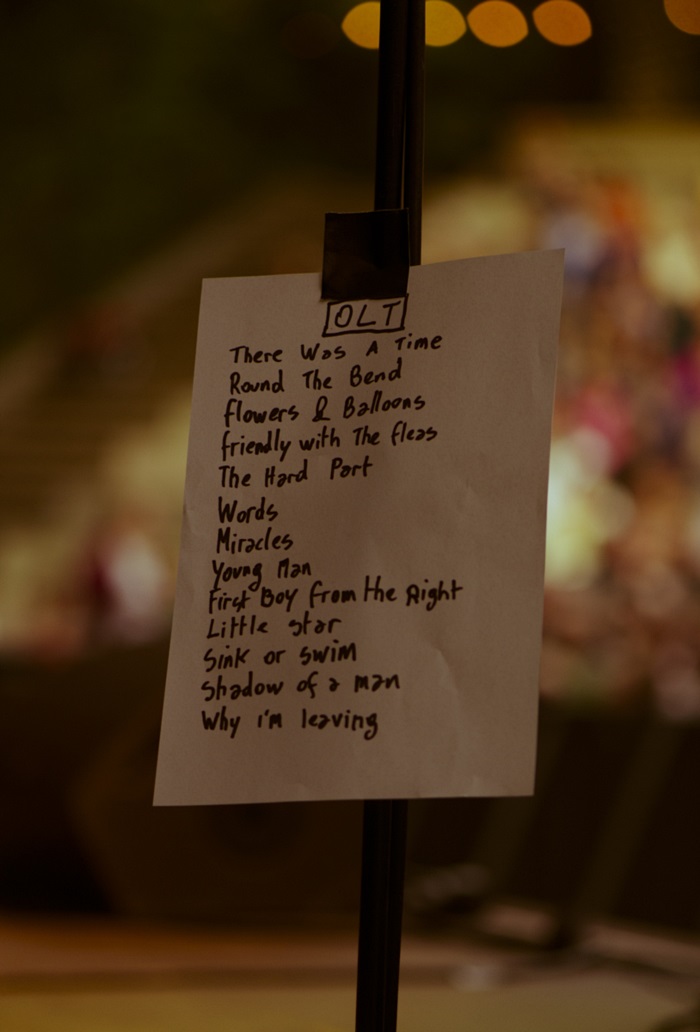 OLT
There Was A Time
Round The Bend
Flowers & Balloons
friendly with The fleas
The Hard Part
Words
Miracles
Young Man
First Boy from the Right
Little star
Sink or swim
Shadow of a man
Why i'm leaving